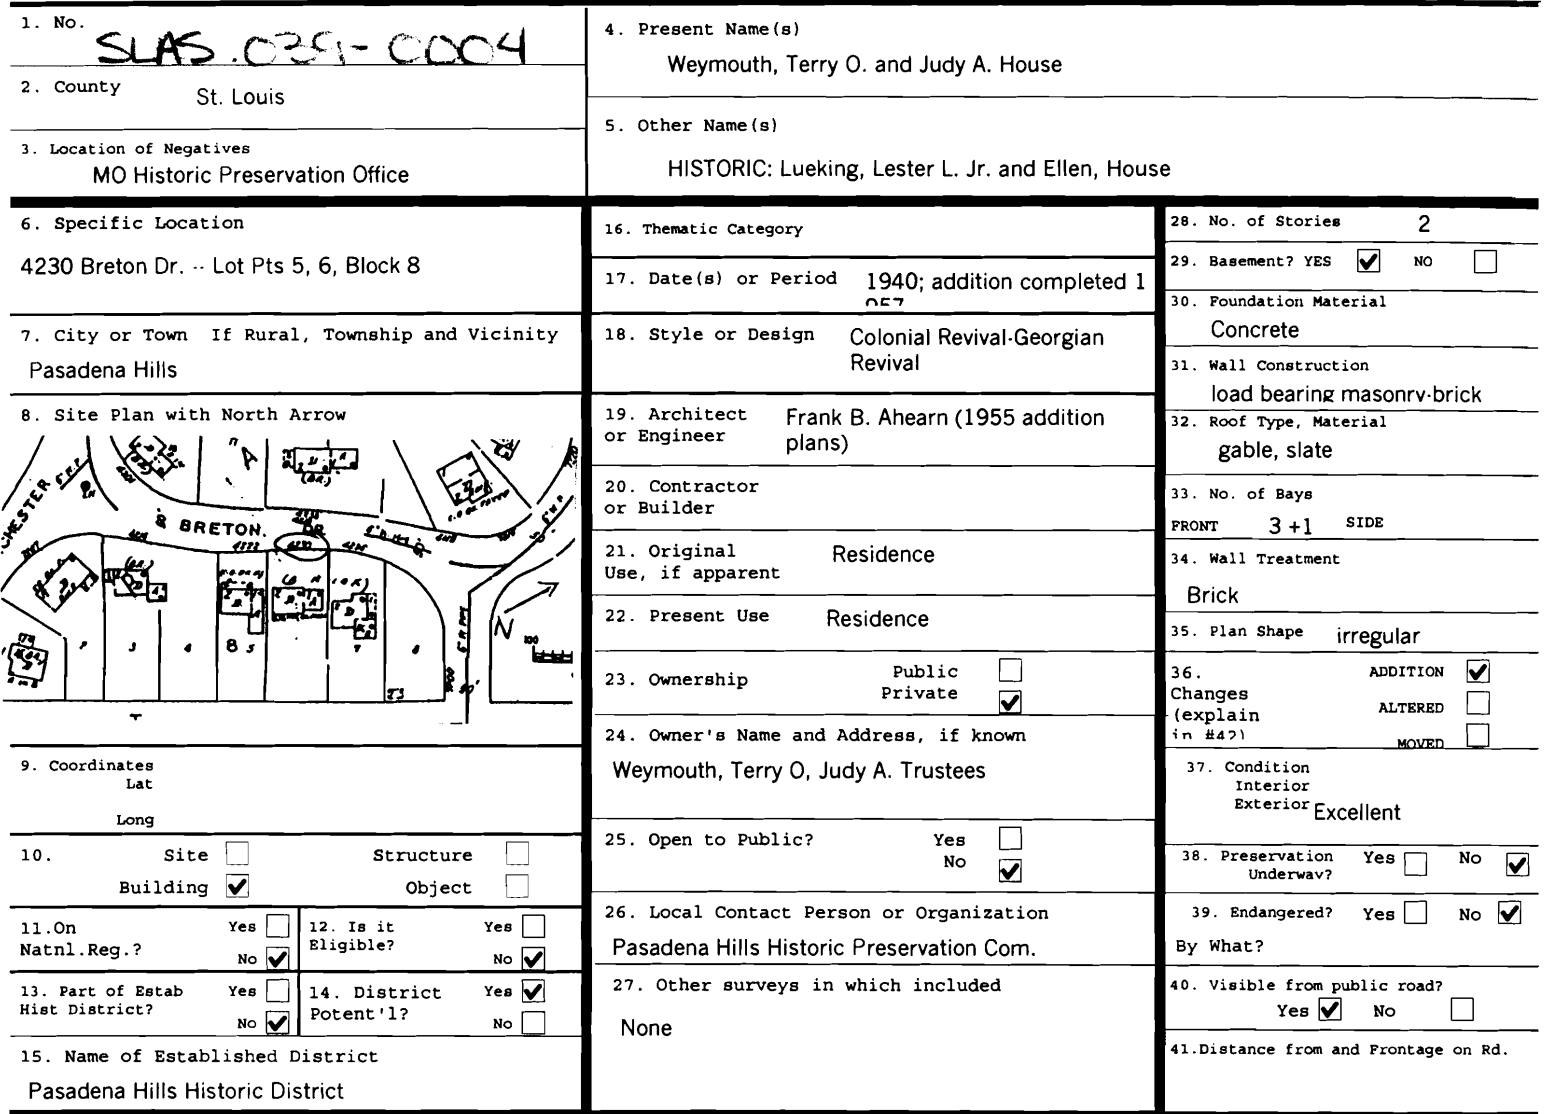 1. No.
SLAS.039-0004
2. County
St. Louis
3. Location of Negatives
MO Historic Preservation Office
4. Present Name(s)
Weymouth, Terry O. and Judy A. House
5. Other Name(s)
HISTORIC: Lueking, Lester L. Jr. and Ellen, House
6. Specific Location
4230 Breton Dr. -- Lot Pts 5, 6, Block 8
7. City or Town If Rural, Township and Vicinity
Pasadena Hills
8. Site Plan with North Arrow
A
BRETON. DR
4230
8 5
7
N
100
9. Coordinates
Lat
Long
10. Site Structure
Building Object
11.On Natnl.Reg.? Yes No
12. Is it Eligible? Yes No
13. Part of Estab Hist District? Yes No
14. District Potent'l? Yes No
15. Name of Established District
Pasadena Hills Historic District
16. Thematic Category
17. Date(s) or Period 1940; addition completed 1
957
18. Style or Design Colonial Revival-Georgian
Revival
19. Architect Frank B. Ahearn (1955 addition
or Engineer plans)
20. Contractor
or Builder
21. Original Residence
Use, if apparent
22. Present Use Residence
23. Ownership Public
Private
24. Owner's Name and Address, if known
Weymouth, Terry O, Judy A. Trustees
25. Open to Public? Yes
No
26. Local Contact Person or Organization
Pasadena Hills Historic Preservation Com.
27. Other surveys in which included
None
28. No. of Stories 2
29. Basement? YES NO
30. Foundation Material
Concrete
31. Wall Construction
load bearing masonry-brick
32. Roof Type, Material
gable, slate
33. No. of Bays
FRONT 3 +1 SIDE
34. Wall Treatment
Brick
35. Plan Shape irregular
36. ADDITION
Changes
(explain ALTERED
in #42) MOVED
37. Condition
Interior
Exterior Excellent
38. Preservation Yes No
Underway?
39. Endangered? Yes No
By What?
40. Visible from public road?
Yes No
41.Distance from and Frontage on Rd.